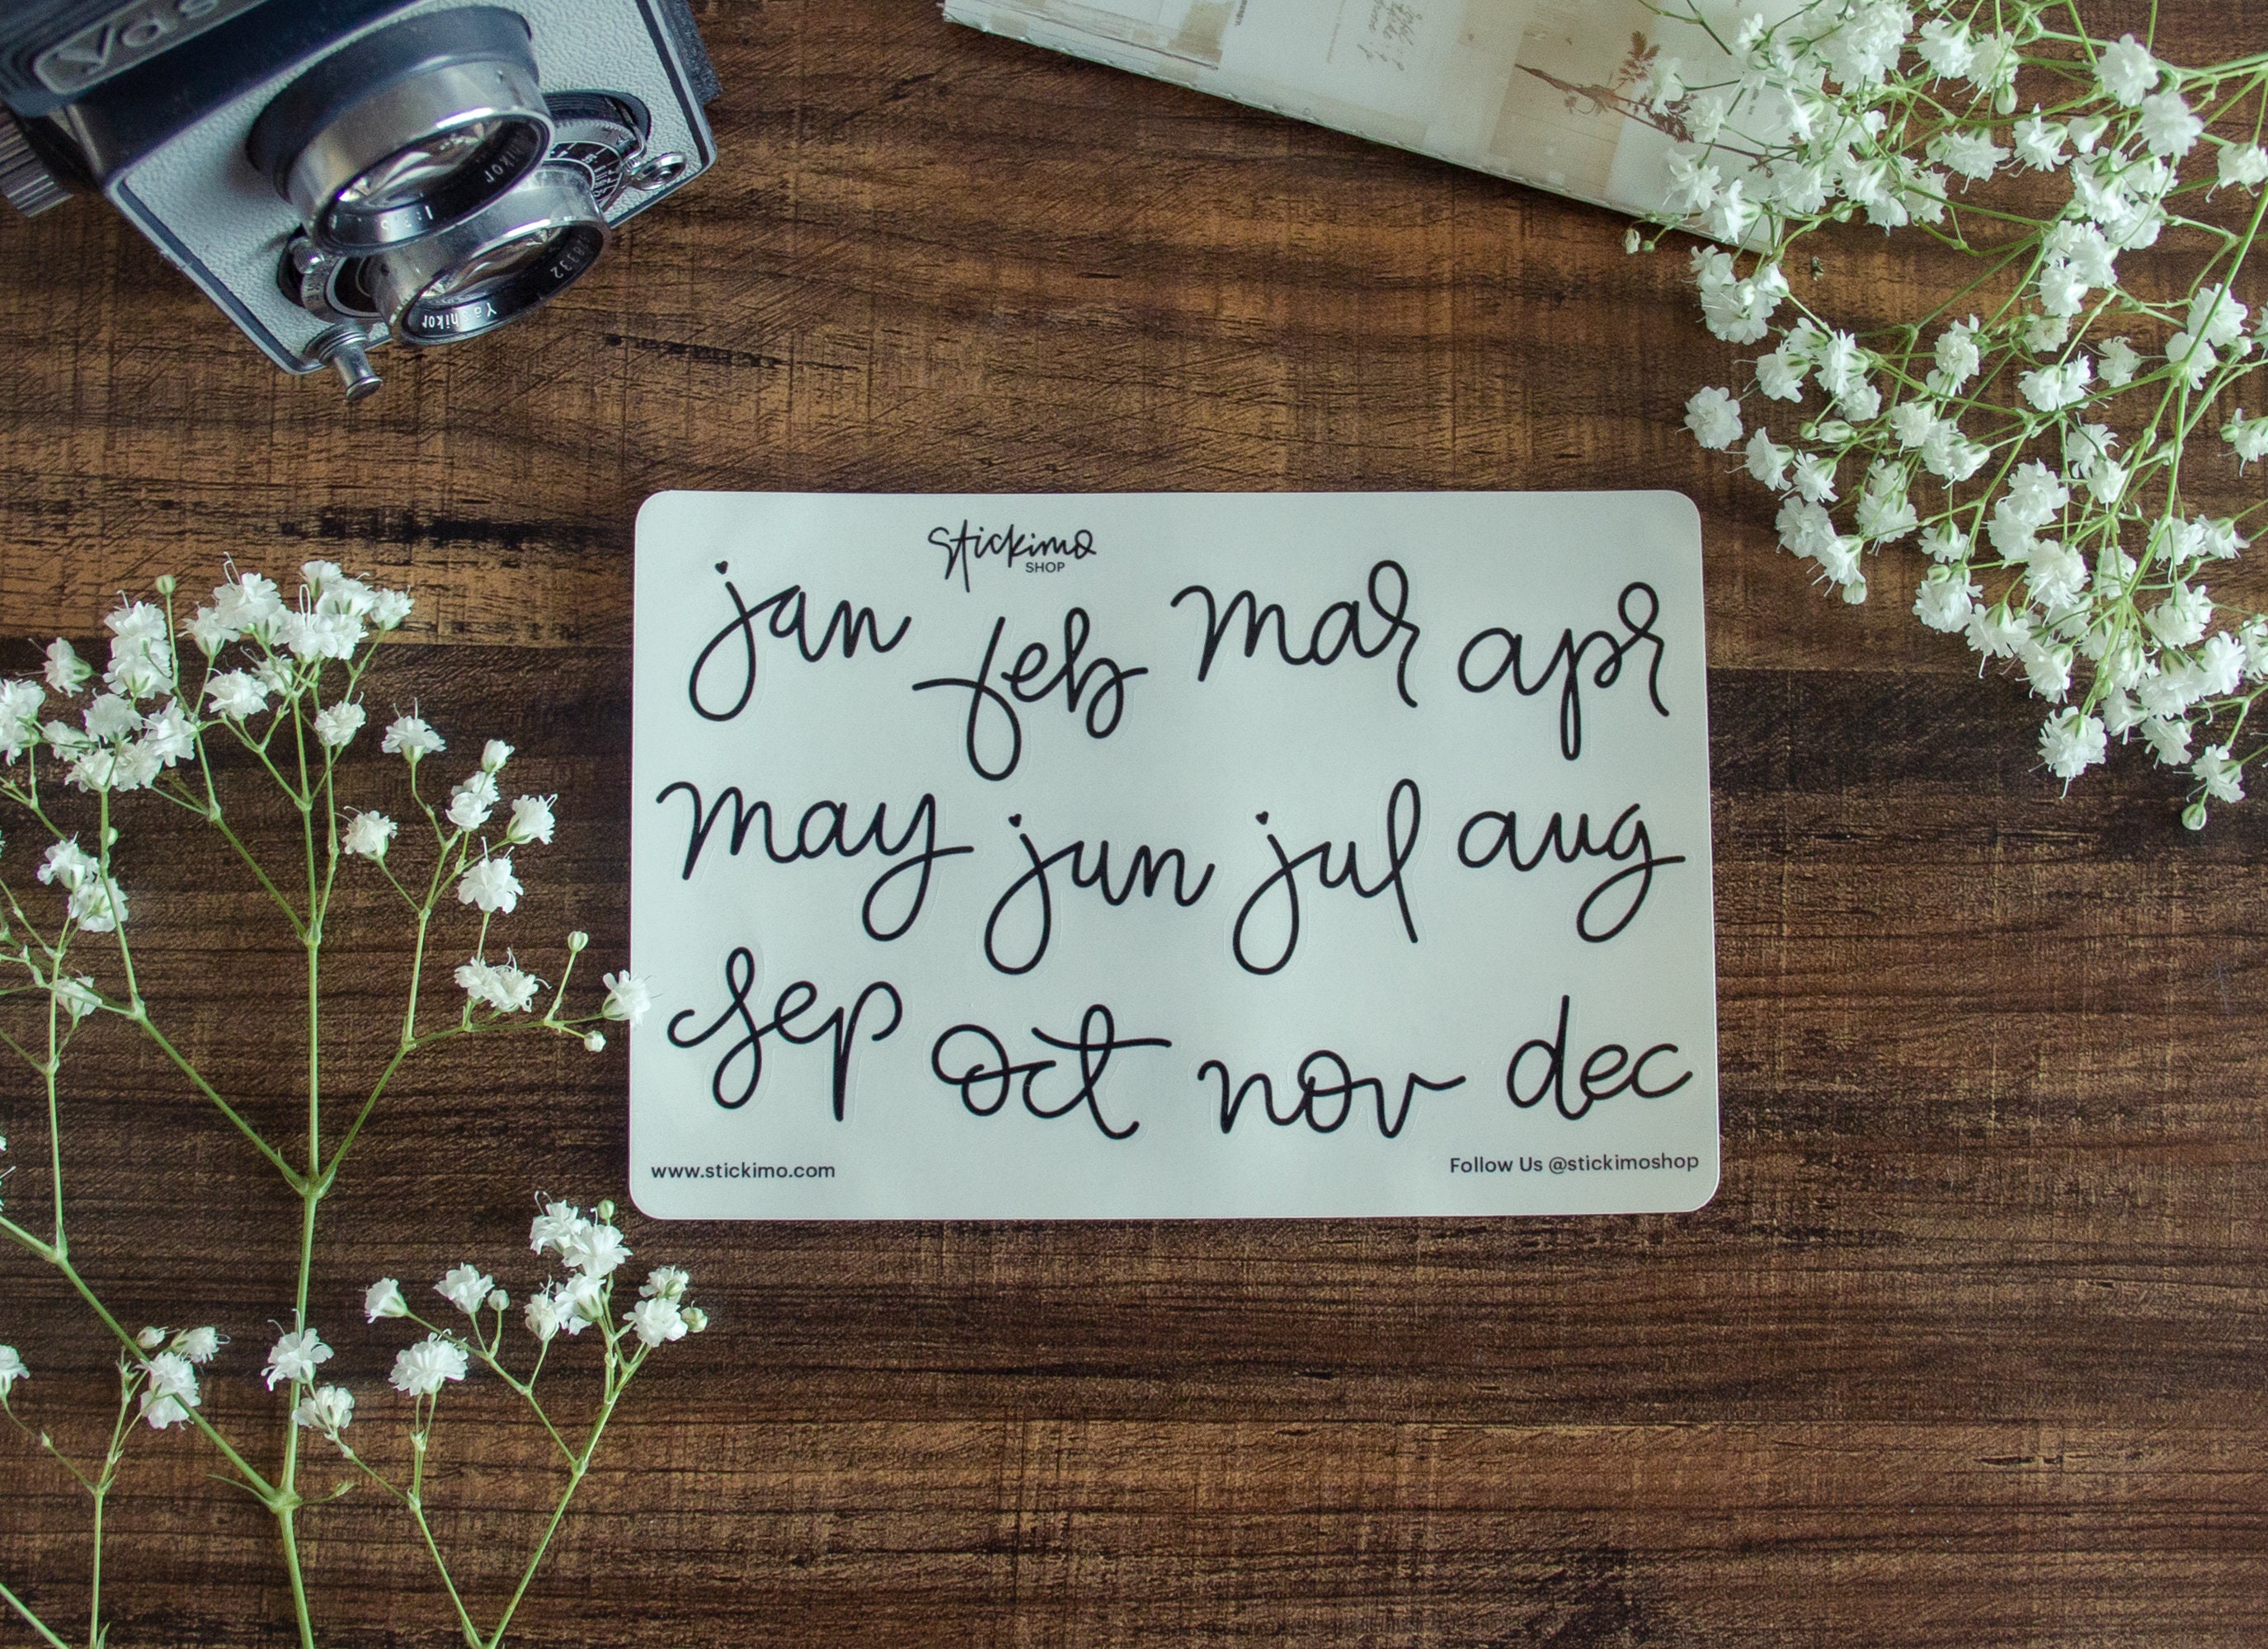 Yas
Yashikor
stickimo
SHOP
jan feb mar apr
may jun jul aug
sep oct nov dec
www.stickimo.com
Follow Us @stickimoshop